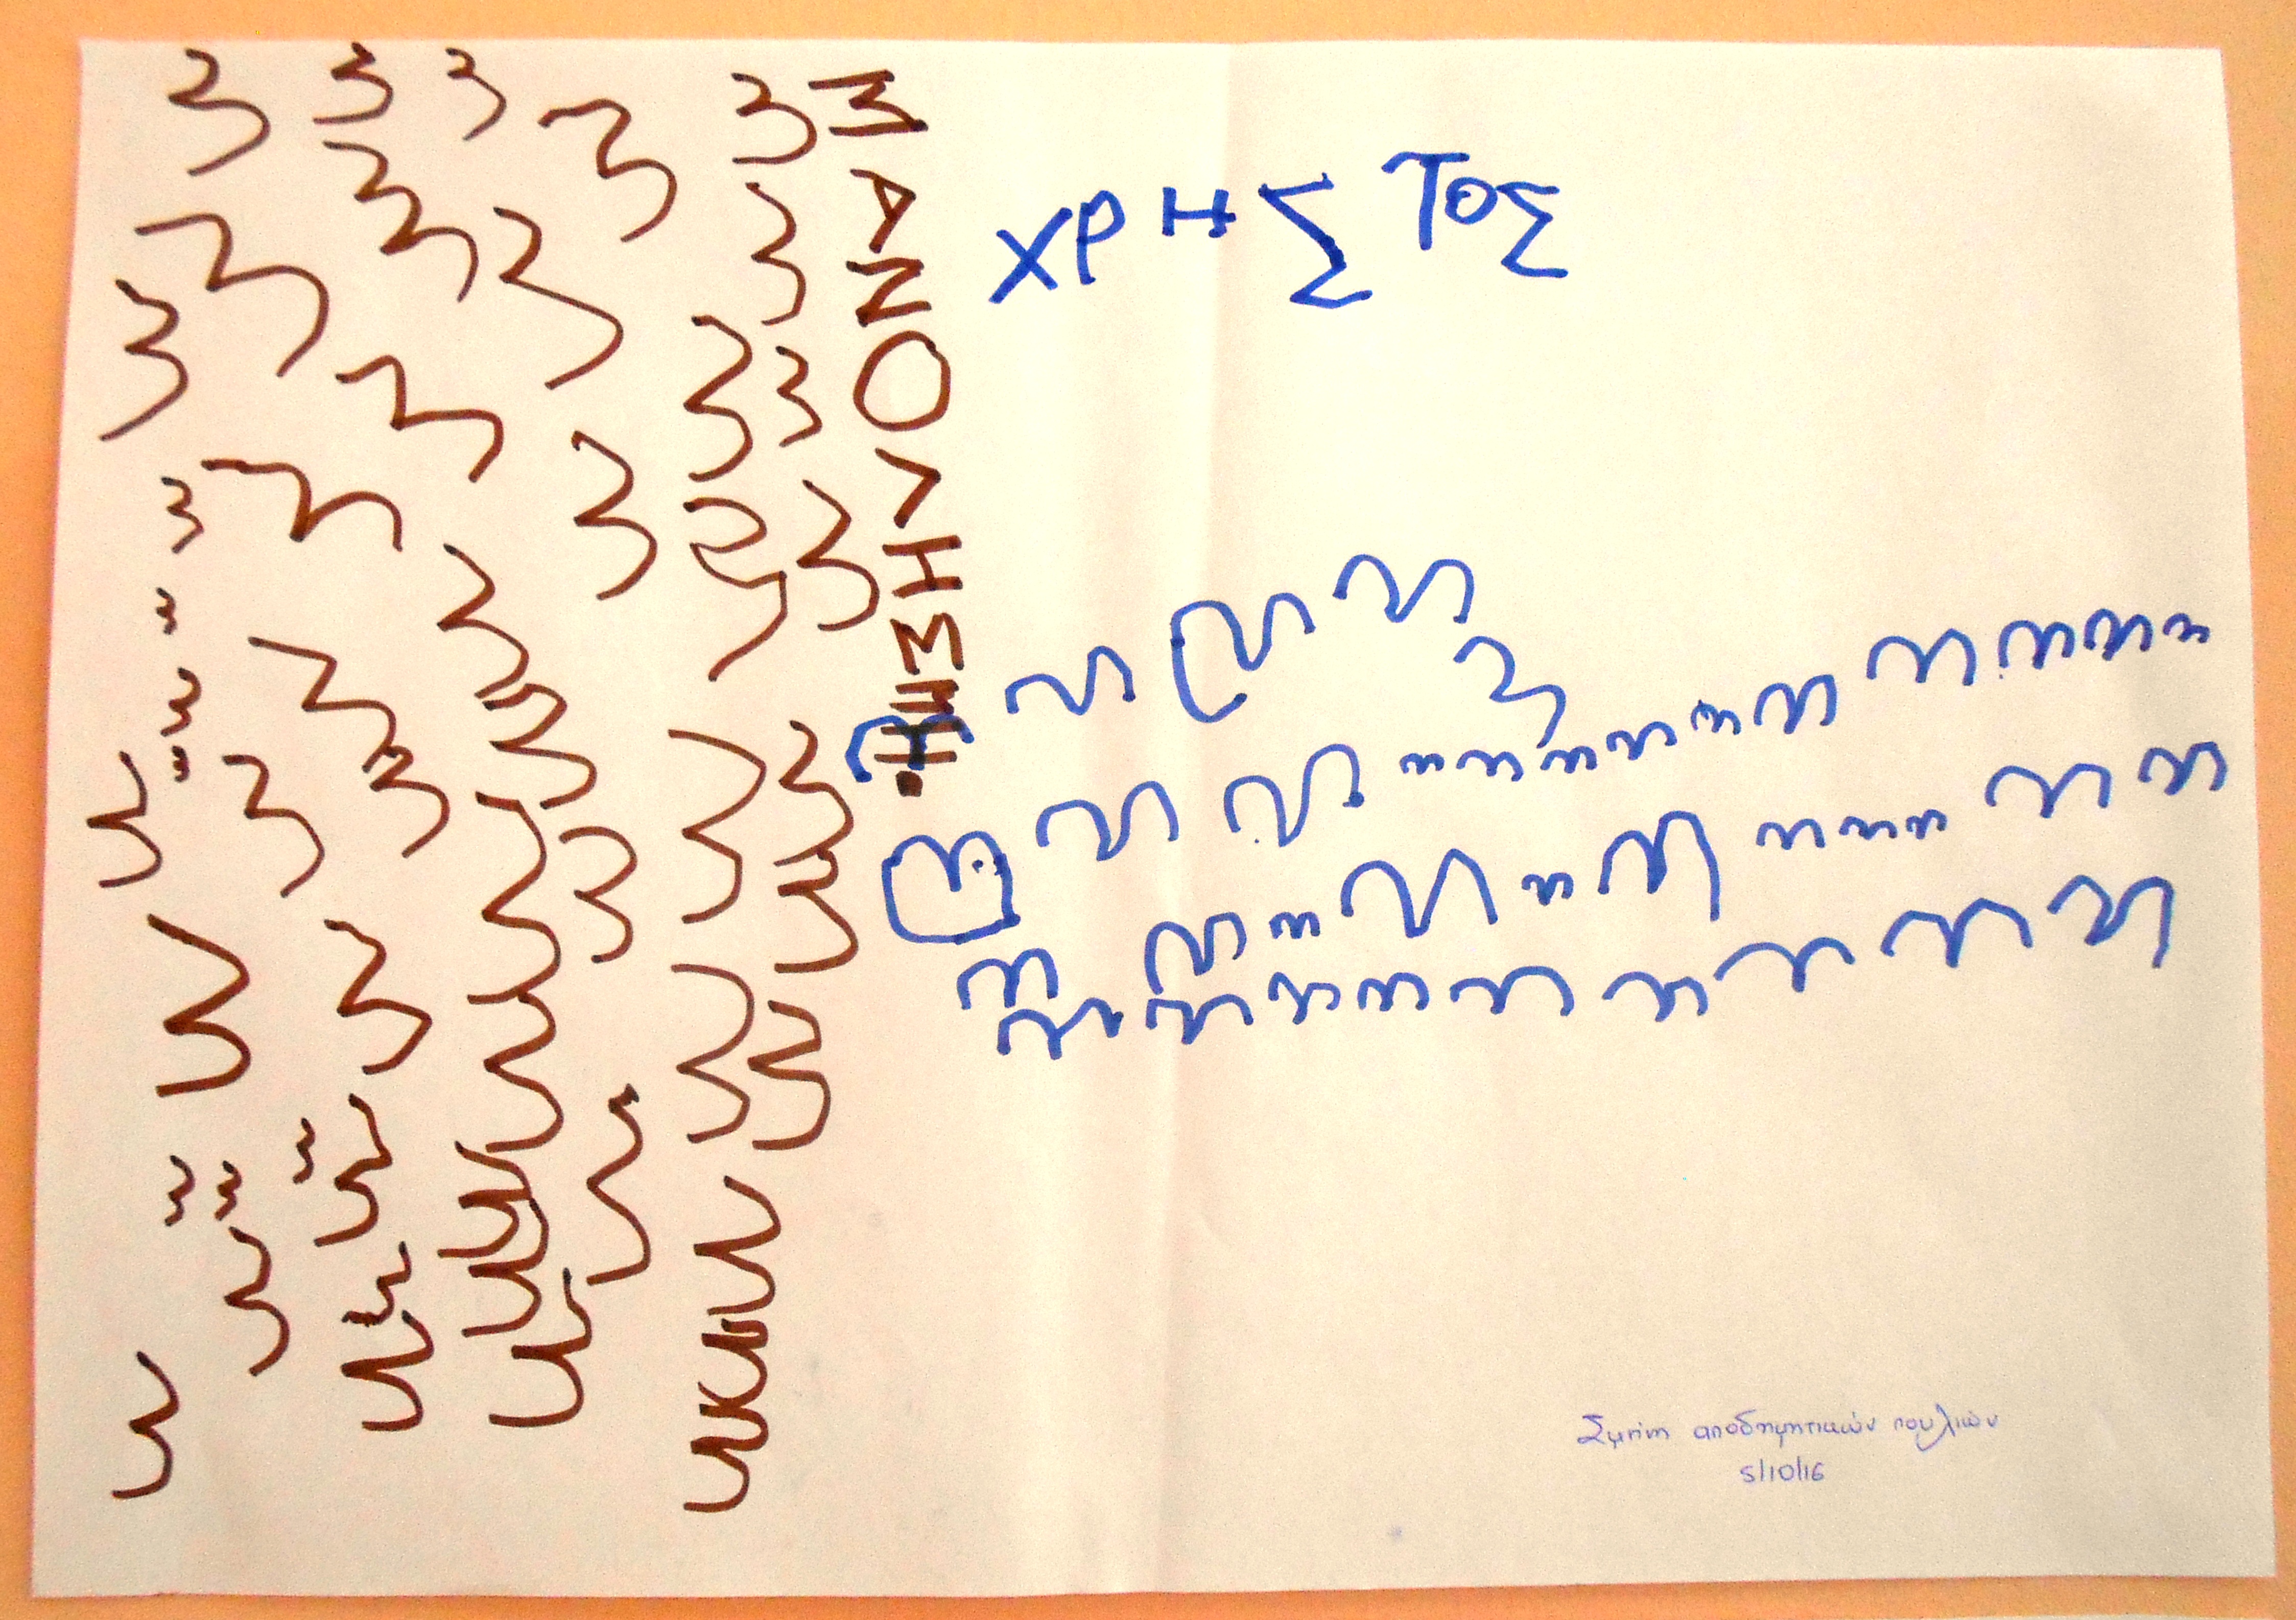 ΜΑΝΟΛΗΣ
ΧΡΗΣΤΟΣ
Σμήνη αποδημητικών πουλιών
5/10/16